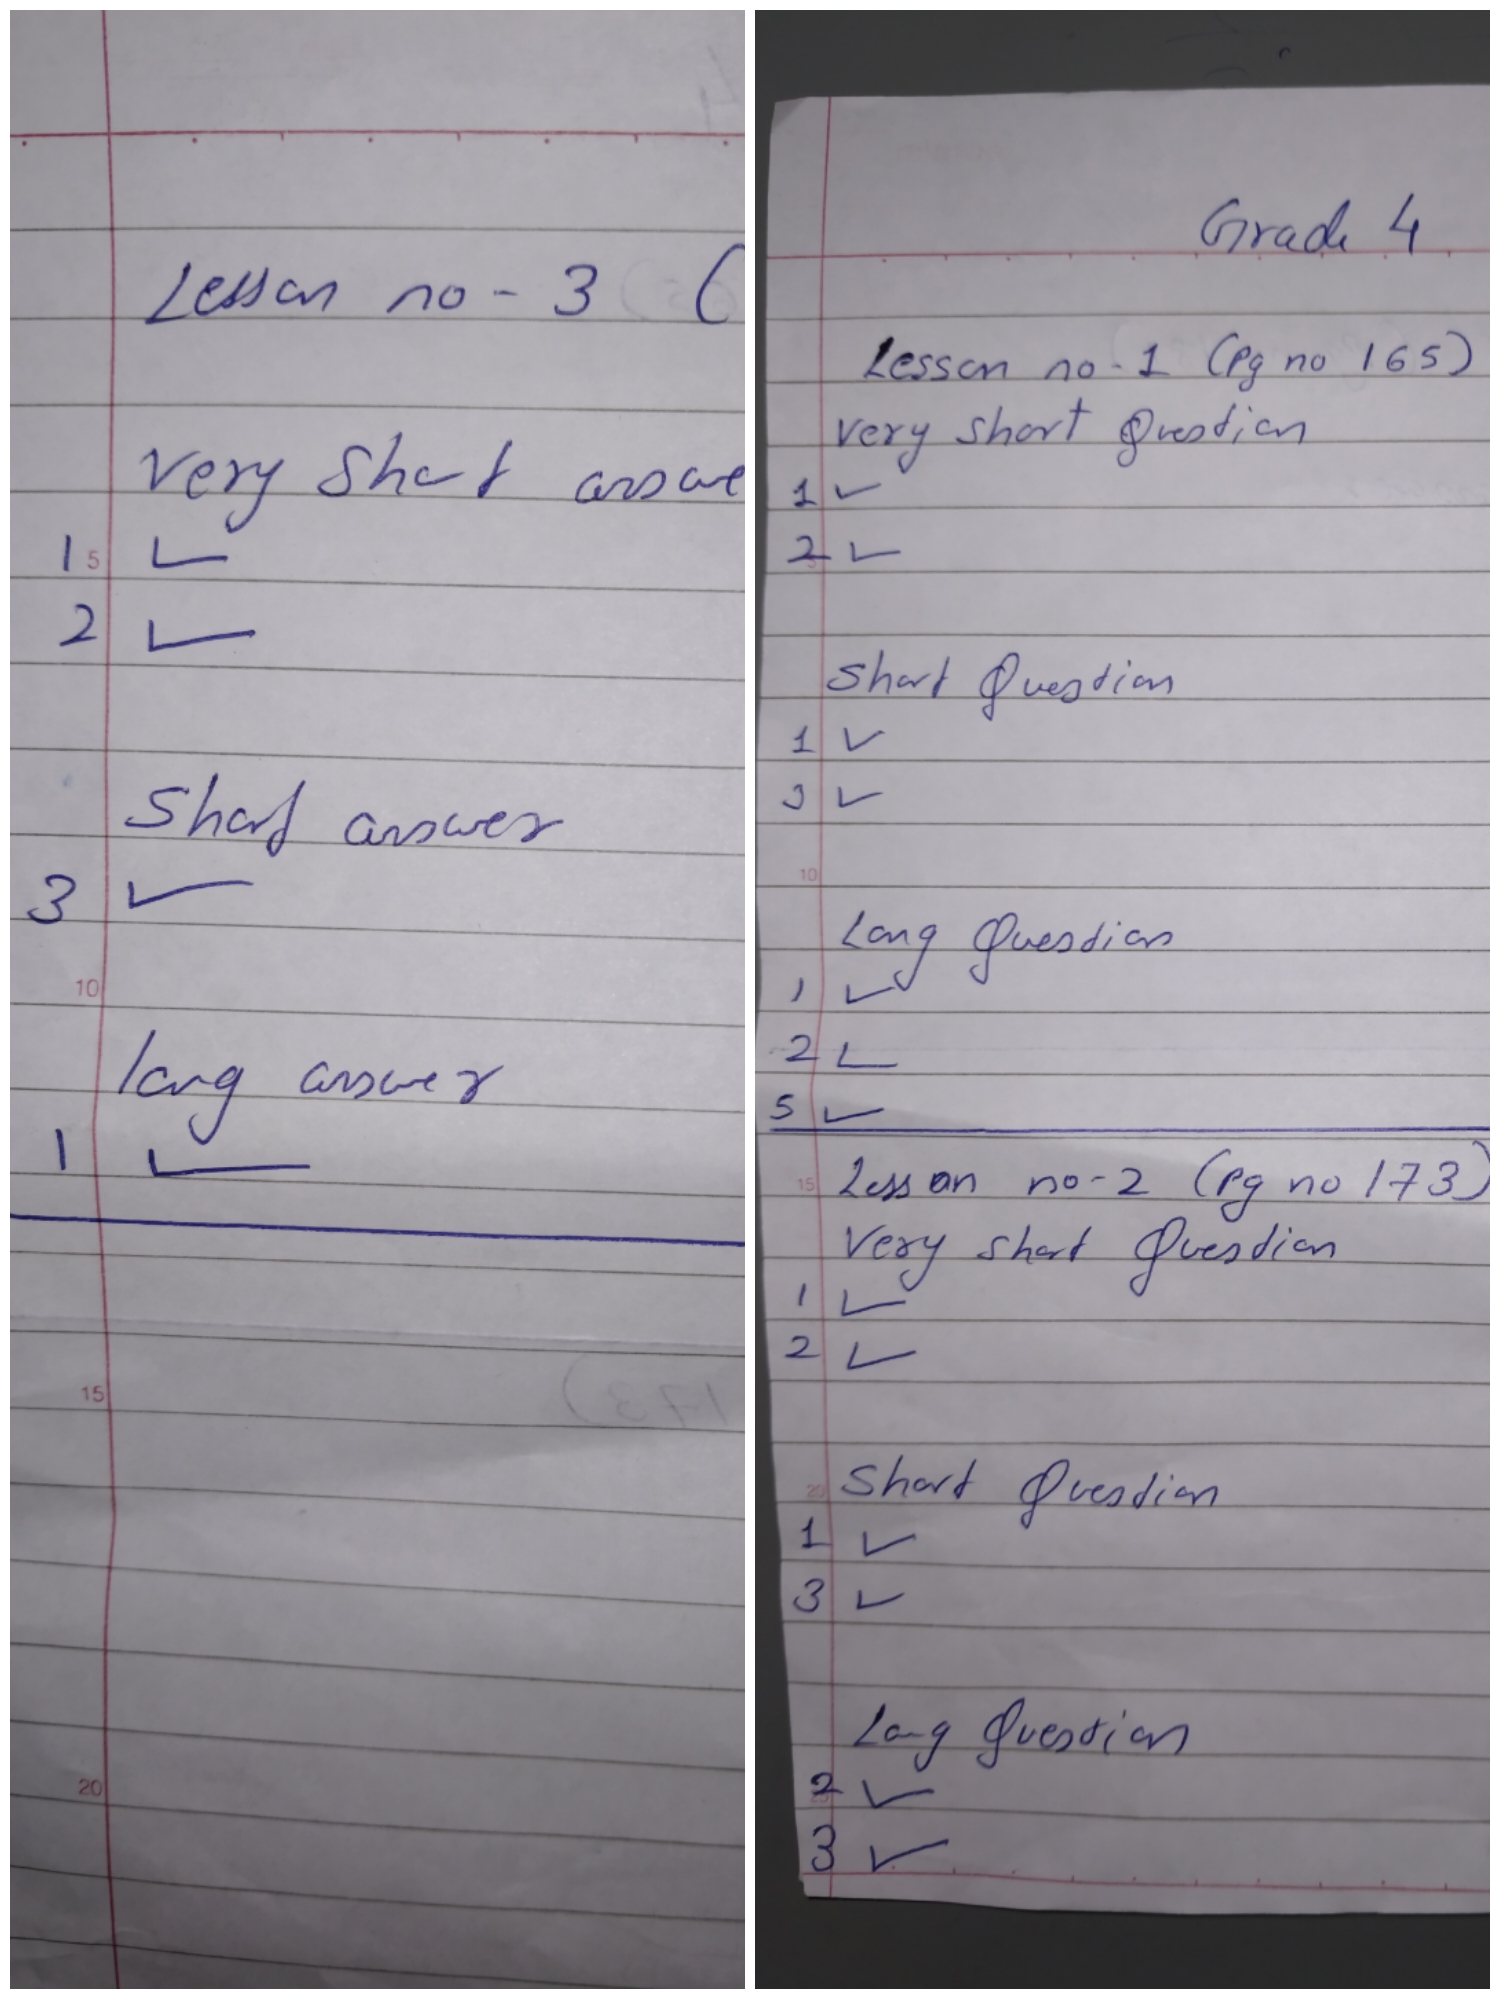 Lesson no - 3 (
Very Short answe
1 ✓
2 ✓
Short answer
3 ✓
long answer
1 ✓
Grade 4
Lesson no - 1 (Pg no 165)
Very Short Question
1 ✓
2 ✓
Short Question
1 ✓
3 ✓
Long Question
1 ✓
2 ✓
5 ✓
Lesson no - 2 (Pg no 173)
Very Short Question
1 ✓
2 ✓
Short Question
1 ✓
3 ✓
Long Question
2 ✓
3 ✓